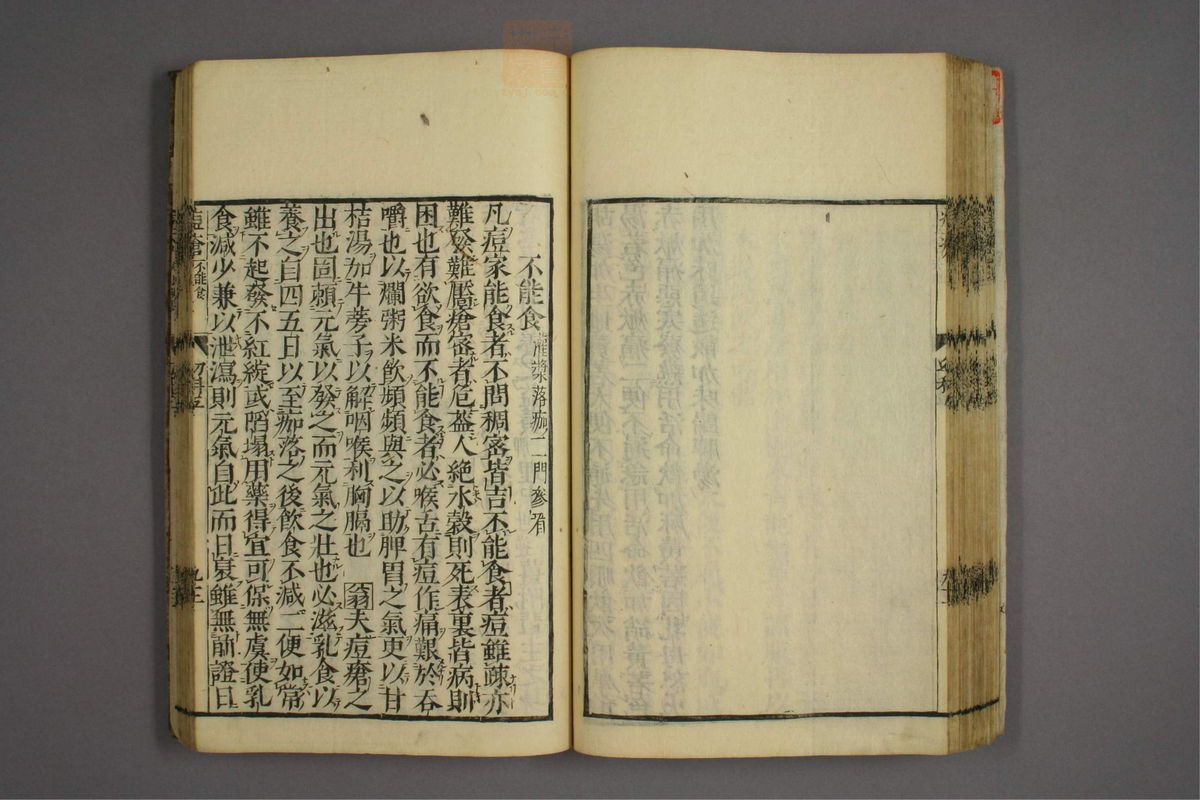 不能食 灌漿落痂二門參看
凡痘家能食者不問稠密皆吉不能食者痘雖疎亦
難發難靨瘡密者危蓋人絶水穀則死表裏皆病則
困也有欲食而不能食者必喉舌有痘作痛艱於吞
嚼也以爛粥米飲頻頻與之以助脾胃之氣更以甘
桔湯加牛蒡子以解咽喉利胸膈也 翁夫痘瘡之
出也固賴元氣以發之而元氣之壯也必滋乳食以
養之自四五日以至痂落之後飲食不減二便如常
雖不起發不紅綻或陷塌用藥得宜可保無虞使乳
食減少兼以泄瀉則元氣自此而日衰雖無前證日
痘瘡 不能食